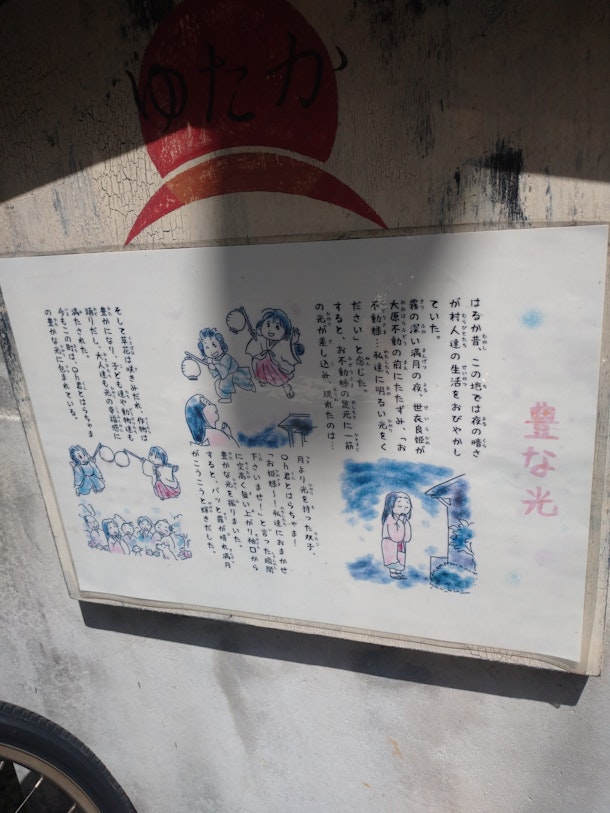 ゆたか
豊な光
はるか昔、この地では夜の暗さ
が村人達の生活をおびやかし
ていた。
霧の深い満月の夜、世衣良姫が
大原不動の前にたたずみ、「お
不動様…私達に明るい光をく
ださい」と念じた。
すると、お不動様の足元に一筋
の光が差し込み、現れたのは…
月より光を持った双子、
Oh君とはらちゃま!
「お姫様〜!私達におまかせ
下さいませ!」と言った瞬間
に空高く舞い上がり、袖口から
豊かな光を振りまいた。
すると、パッと霧が晴れ、満月
がこうこうと輝きだした。
そして草花は咲きみだれ、作物は
豊かになり、子ども達や動物達も
踊りだし、大人達も光の幸福感に
満たされた。
今もこの町は、Oh君とはらちゃま
の豊かな光に包まれている。